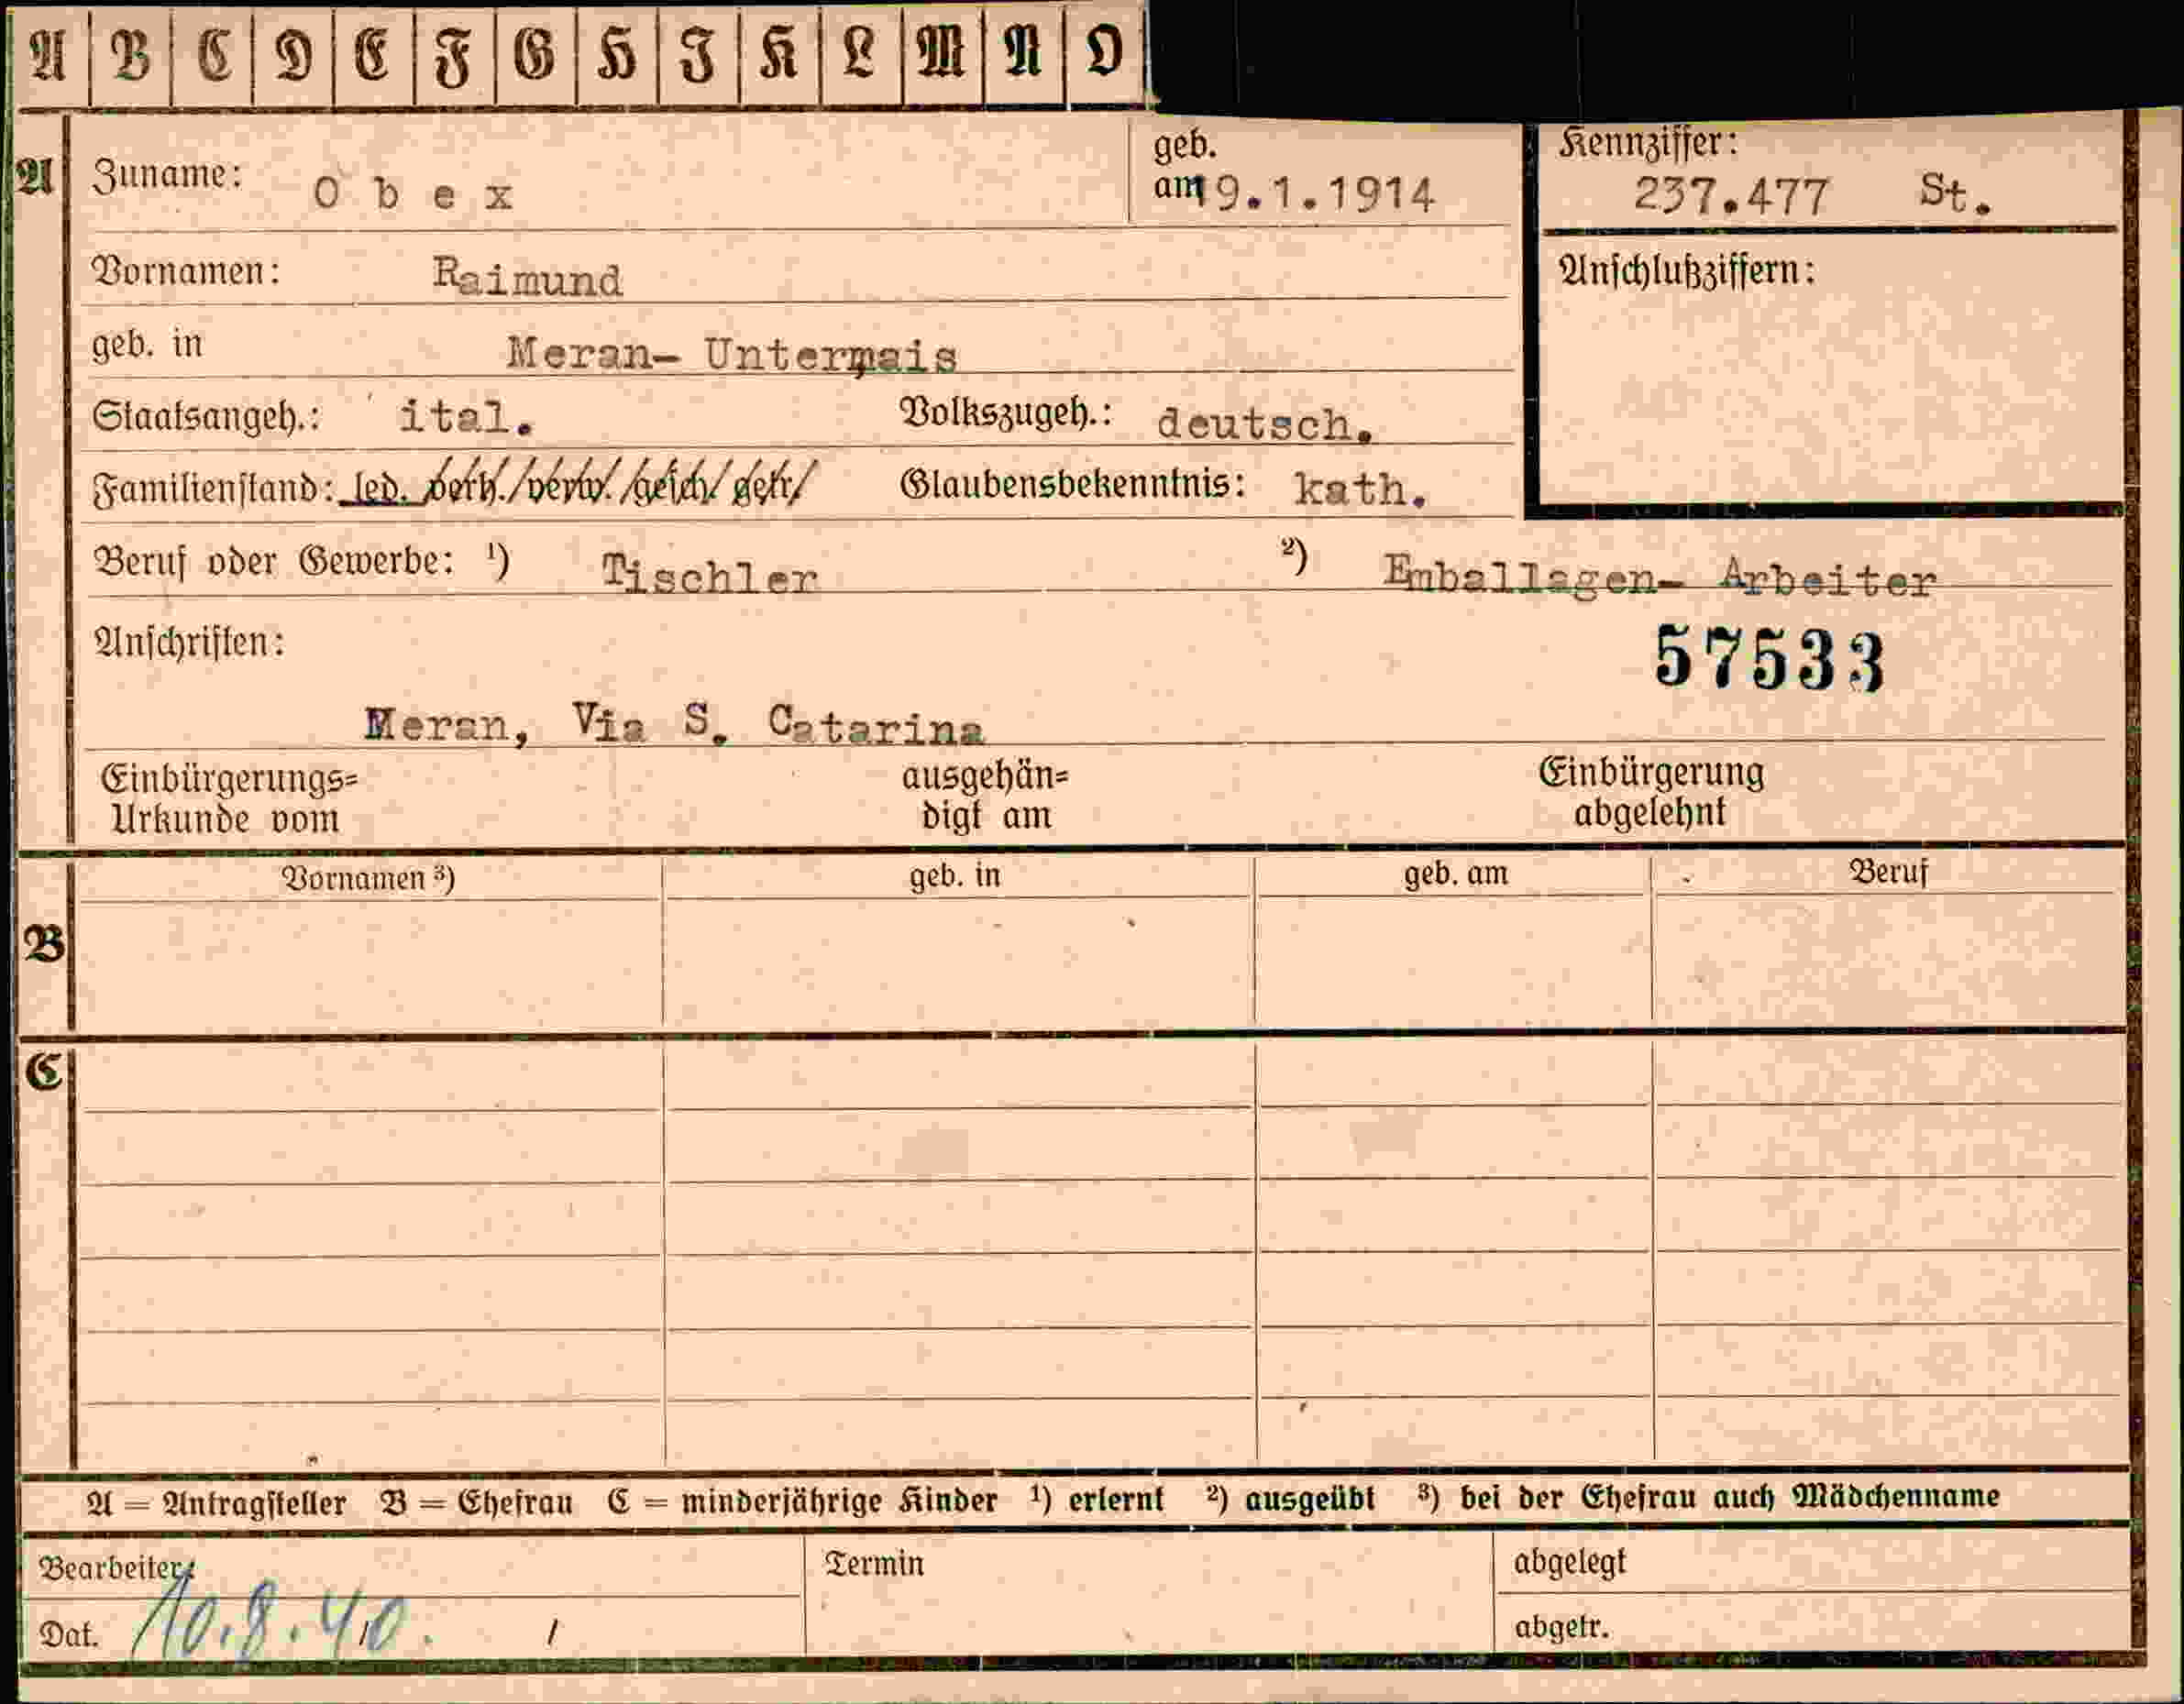 A B C D E F G H I K L M N O
A Zuname: Obex geb. am 9.1.1914 Kennziffer: 237.477 St.
Vornamen: Raimund Anschlußziffern:
geb. in Meran- Untermais
Staatsangeh.: ital. Volkszugeh.: deutsch.
Familienstand: led. verh./verw./gesch./getr. Glaubensbekenntnis: kath.
Beruf oder Gewerbe: ¹) Tischler ²) Emballagen- Arbeiter
Anschriften: 57533
Meran, Via S. Catarina
Einbürgerungs= ausgehän= Einbürgerung
Urkunde vom digt am abgelehnt
Vornamen ³) geb. in geb. am Beruf
B
C
A = Antragsteller B = Ehefrau C = minderjährige Kinder ¹) erlernt ²) ausgeübt ³) bei der Ehefrau auch Mädchenname
Bearbeiter: Termin abgelegt
Dat. 10.8.40. / abgetr.